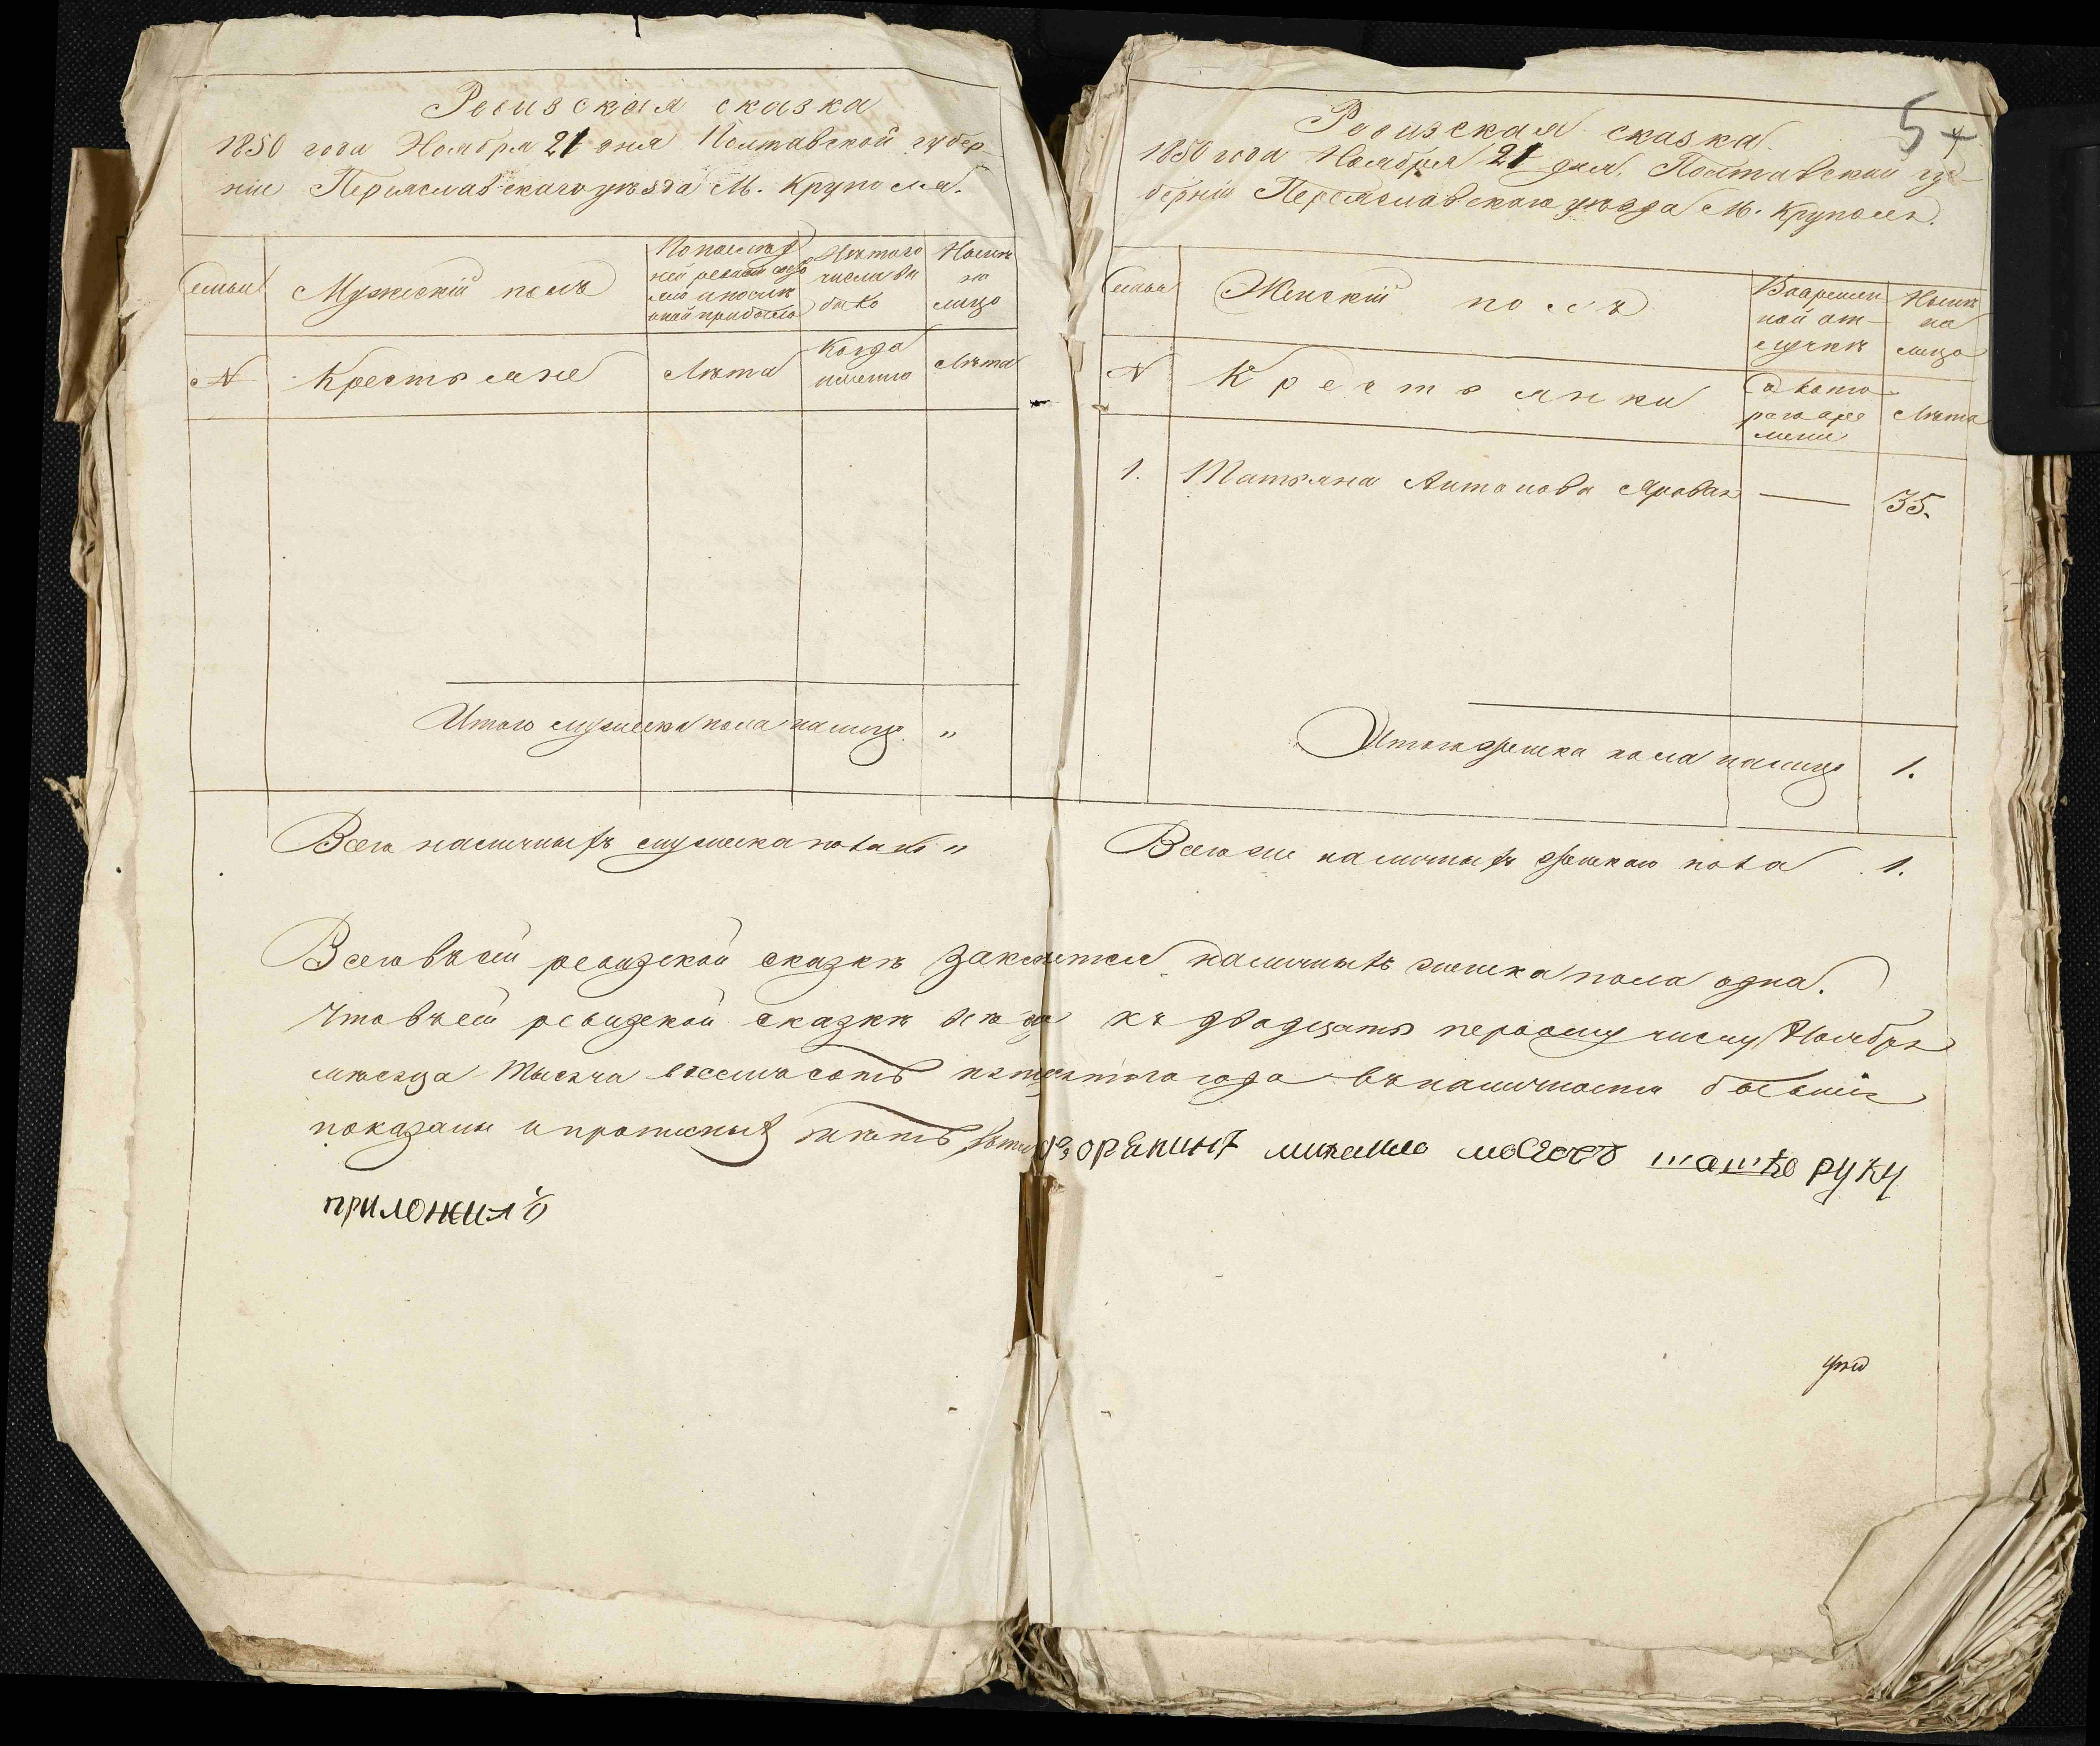 Ревизская сказка
1850 года Ноября 21 дня Полтавской губер
ніи Переяславскаго уѣзда М. Круполя.
Семьи
Мужескій полъ
По послѣд
ней ревизіи
Изъ того
числа вы
было
Нынѣ
на
лицо
N
Крестьяне
Лѣта
Когда
именно
Лѣта
Итого мужеска пола на лицо "
Всего наличныхъ мужеска пола "
5
Ревизская сказка.
1850 года Ноября 21 дня. Полтавской гу
берніи Переяславскаго уѣзда М. Круполя.
Семьи
Женскій полъ
Во времен
ной от
лучкѣ
Нынѣ
на
лицо
N
Крестьянки
Съ кото
раго вре
мени
Лѣта
1. Татьяна Антонова Яровая — 35.
Итого женска пола на лицо 1.
Всего же наличныхъ женскаго пола 1.
Всего в сей ревизской сказкѣ наличныхъ женска пола одна.
Что в сей ревизской сказкѣ всѣ къ двадцать первому числу Ноября
мѣсяца тысяча восемьсотъ пятдесятого года въ наличности бывшіе
показаны и прописныхъ нѣтъ дворянинъ руку
приложилъ